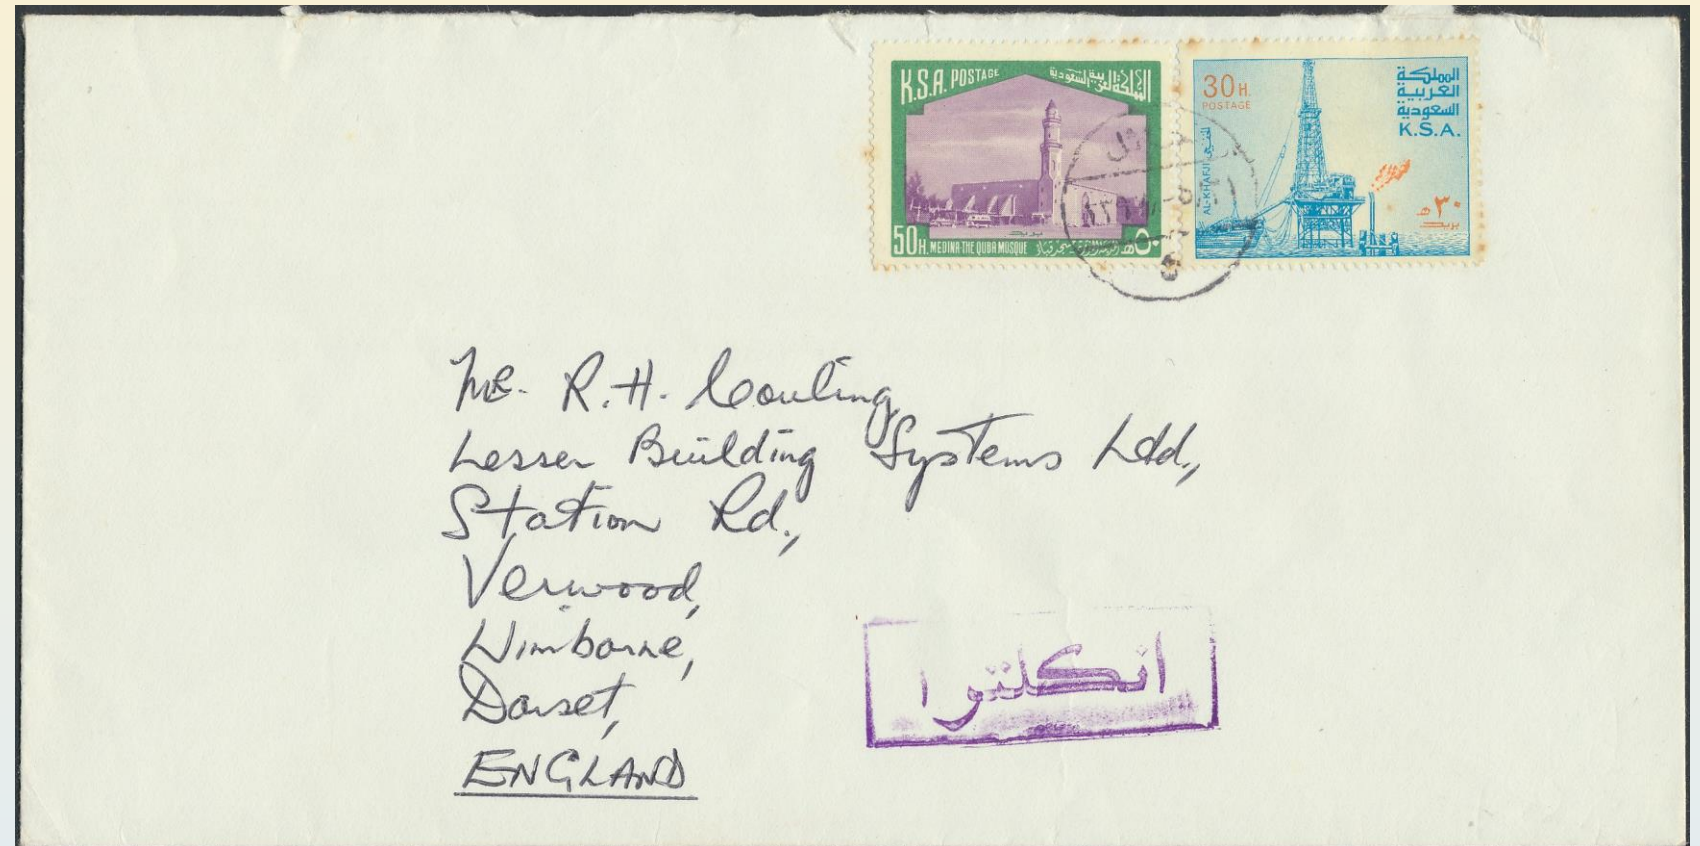 K.S.A. POSTAGE
المملكة العربية السعودية
بريد
50H. MEDINA-THE QUBA MOSQUE
٥٠
30 H.
POSTAGE
المملكة
العربية
السعودية
K.S.A.
AL-KHAFJI الخفجي
٣٠ هـ
بريد
Mr. R.H. Couling
Lesser Building Systems Ltd.,
Station Rd.,
Verwood,
Wimborne,
Dorset,
ENGLAND
انكلترا